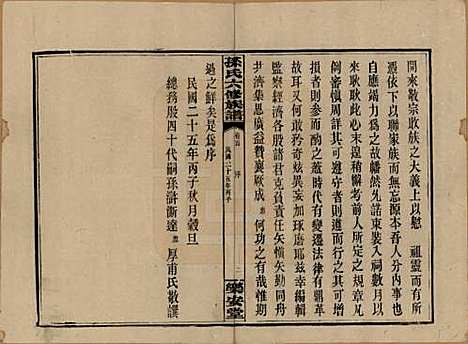 開來敷宗敬族之大義上以慰　祖靈而有所
憑依下以聯家族而無忘源本吾人分內事也
自應竭力爲之故幡然先諾束裝入祠數月以
來耿耿此心未遑稍懈考合前人之規條以
倒審慎周詳其可遵守者則因之其有所
損者則參合而酌盡蓋時代有變遷法律有興革
故耳又何敢矜奇炫異妄加琢磨耶玆幸編輯
監察經濟各股諸君克負責任矢勤矢慎同舟
共濟集思廣益贊襄厥成　何功之有哉惟期
孫氏六修族譜
卷首　序
民國二十五年丙子
樂安堂
過之鮮矣是爲序
民國二十五年丙子秋月穀旦
總務股四十代嗣孫澍漸逵　厚甫氏敬譔